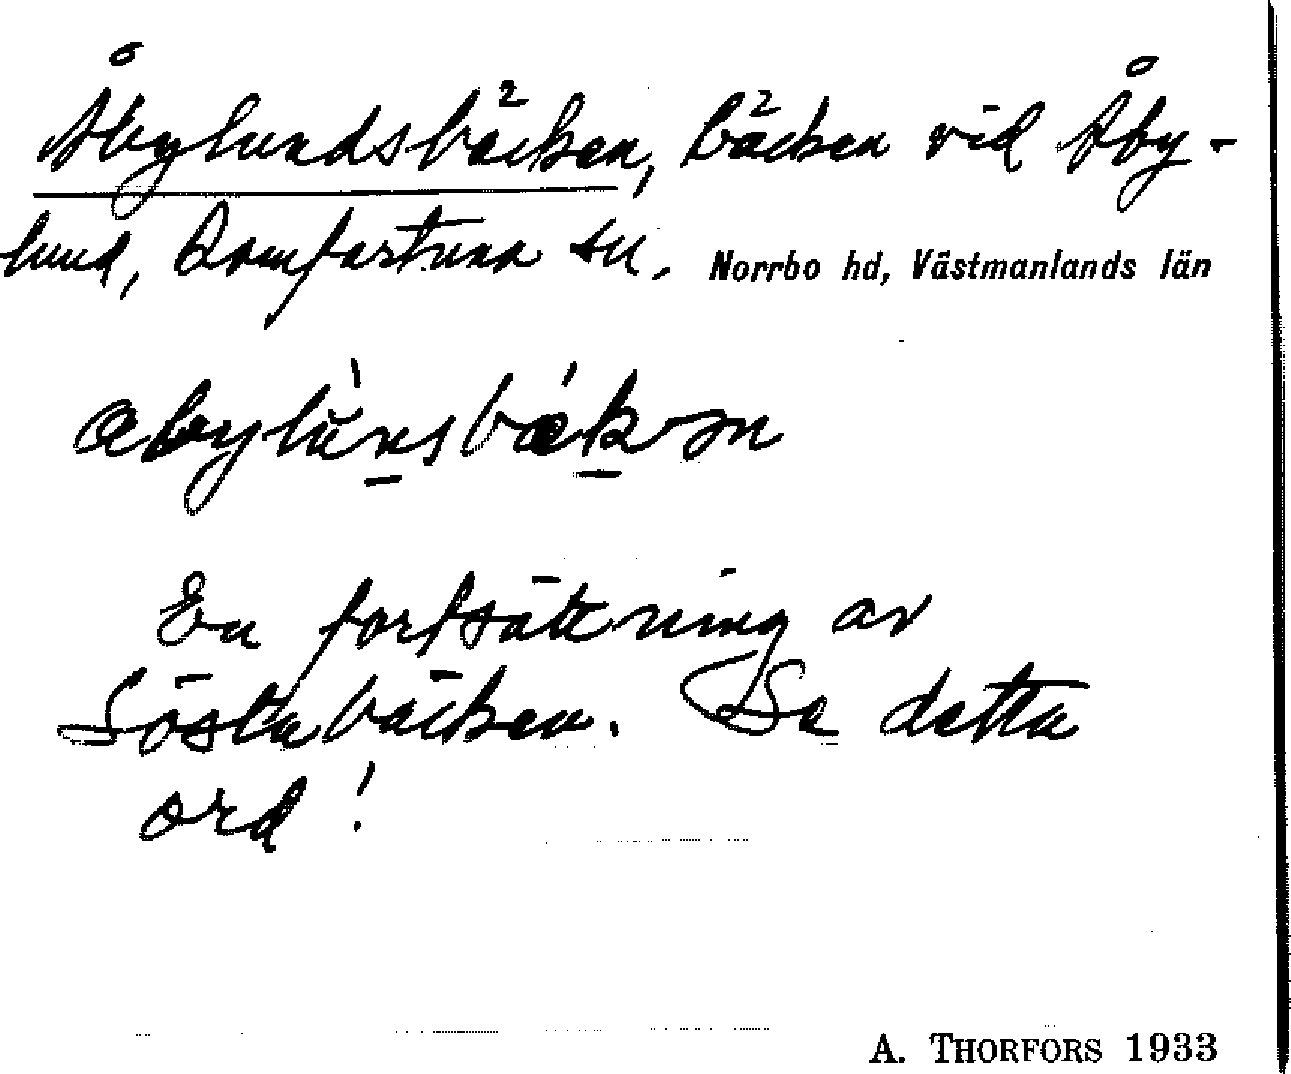 Åbylundsbäcken, bäcken vid Åby-
lund, Romfartuna sn, Norrbo hd, Västmanlands län
abylùnsbǽkən
En fortsättning av
Löstabäcken. Se detta
ord!
A. THORFORS 1933